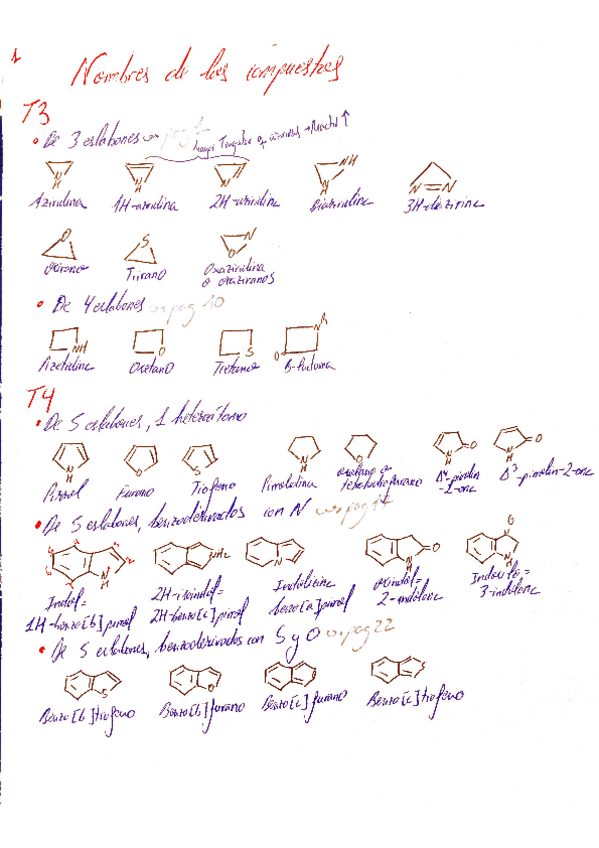 1
Nombres de los compuestos
T3
• De 3 eslabones → pag 1
mayor Tensión q azirinas → React ↑
NH NH N NH N=N
Aziridina 1H-azirina 2H-azirina Diaziridina 3H-diazirina
O S O N
Oxirano Tiirano Oxaziridina
o oxaziranos
• De 4 eslabones → pag 10
NH O S O R
Azetidina Oxetano Tietano β-lactama
T4
• De 5 eslabones, 1 heteroátomo
N H O S N H O N H O N H O
Pirrol Furano Tiofeno Pirrolidina oxolano o tetrahidrofurano Δ4-pirrolin-2-ona Δ3-pirrolin-2-ona
• De 5 eslabones, benzoderivados con N → pag 17
N H NH2 N N H O O N H
Indol= 2H-isoindol= Indolicina oxindol= Indoxilo=
1H-benzo[b]pirrol 2H-benzo[c]pirrol benzo[a]pirrol 2-indolona 3-indolona
• De 5 eslabones, benzoderivados con S y O → pag 22
S O O S
Benzo[b]tiofeno Benzo[b]furano Benzo[c]furano Benzo[c]tiofeno